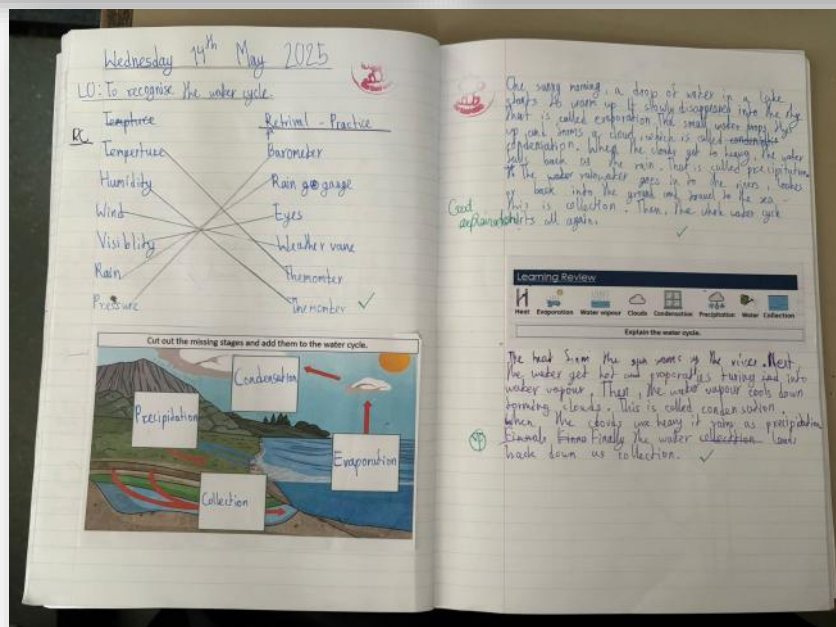 Wednesday 14th May 2025
LO: To recognise the water cycle.
Tempture
Retrival - Practice
RC
Temperture
Barometer
Humidity
Rain go gauge
Wind
Eyes
Visiblity
Weather vane
Rain
Themomter
Pressure
Themomber
Cut out the missing stages and add them to the water cycle.
Condensation
Precipitation
Evaporation
Collection
One sunny morning, a drop of water in a lake
starts to warm up. It slowly disappeared into the sky.
that is called evaporation. The small water drops
up and forms a cloud, which is called
condensation. When the clouds get to heavy, the water
falls back as the rain. That is called precipitation.
The water rainwater goes in to the rivers, lakes
or back into the ground and travel to the sea.
This is collection. Then, the whole water cycle
starts all again.
Good
explanation!
Learning Review
Heat Evaporation Water vapour Clouds Condensation Precipitation Water Collection
Explain the water cycle.
The heat from the sun warms up the river. Next
the water get hot and evaporates turing into
water vapour. Then, the water vapour cools down
forming clouds. This is called condensation.
When the clouds are heavy it rains as precipitation
Finally the water collection lands
back down as collection.